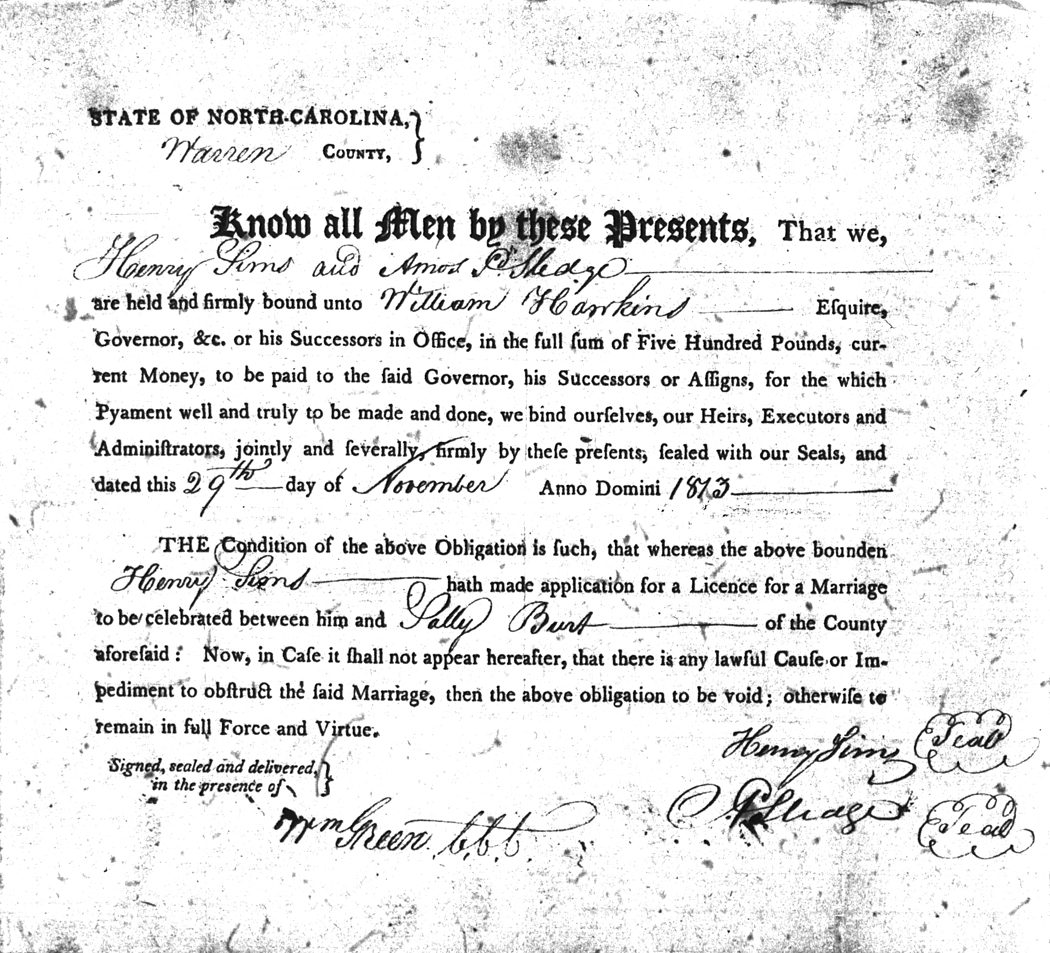 STATE OF NORTH-CAROLINA,
Warren COUNTY,
Know all Men by these Presents, That we,
Henry Sims and Amos Pd Sledge
are held and firmly bound unto William Hawkins Eſquire,
Governor, &c. or his Successors in Office, in the full ſum of Five Hundred Pounds, cur-
rent Money, to be paid to the ſaid Governor, his Successors or Aſſigns, for the which
Pyament well and truly to be made and done, we bind ourſelves, our Heirs, Executors and
Adminiſtrators, jointly and ſeverally, firmly by theſe preſents, ſealed with our Seals, and
dated this 29th day of November Anno Domini 1813
THE Condition of the above Obligation is ſuch, that whereas the above bounden
Henry Sims hath made application for a Licence for a Marriage
to be celebrated between him and Sally Burt of the County
aforeſaid: Now, in Caſe it ſhall not appear hereafter, that there is any lawful Cauſe or Im-
pediment to obſtruct the ſaid Marriage, then the above obligation to be void; otherwiſe to
remain in full Force and Virtue.
Henry Sims Seal
Signed, sealed and delivered,
in the presence of
Sledge Seal
Wm Green